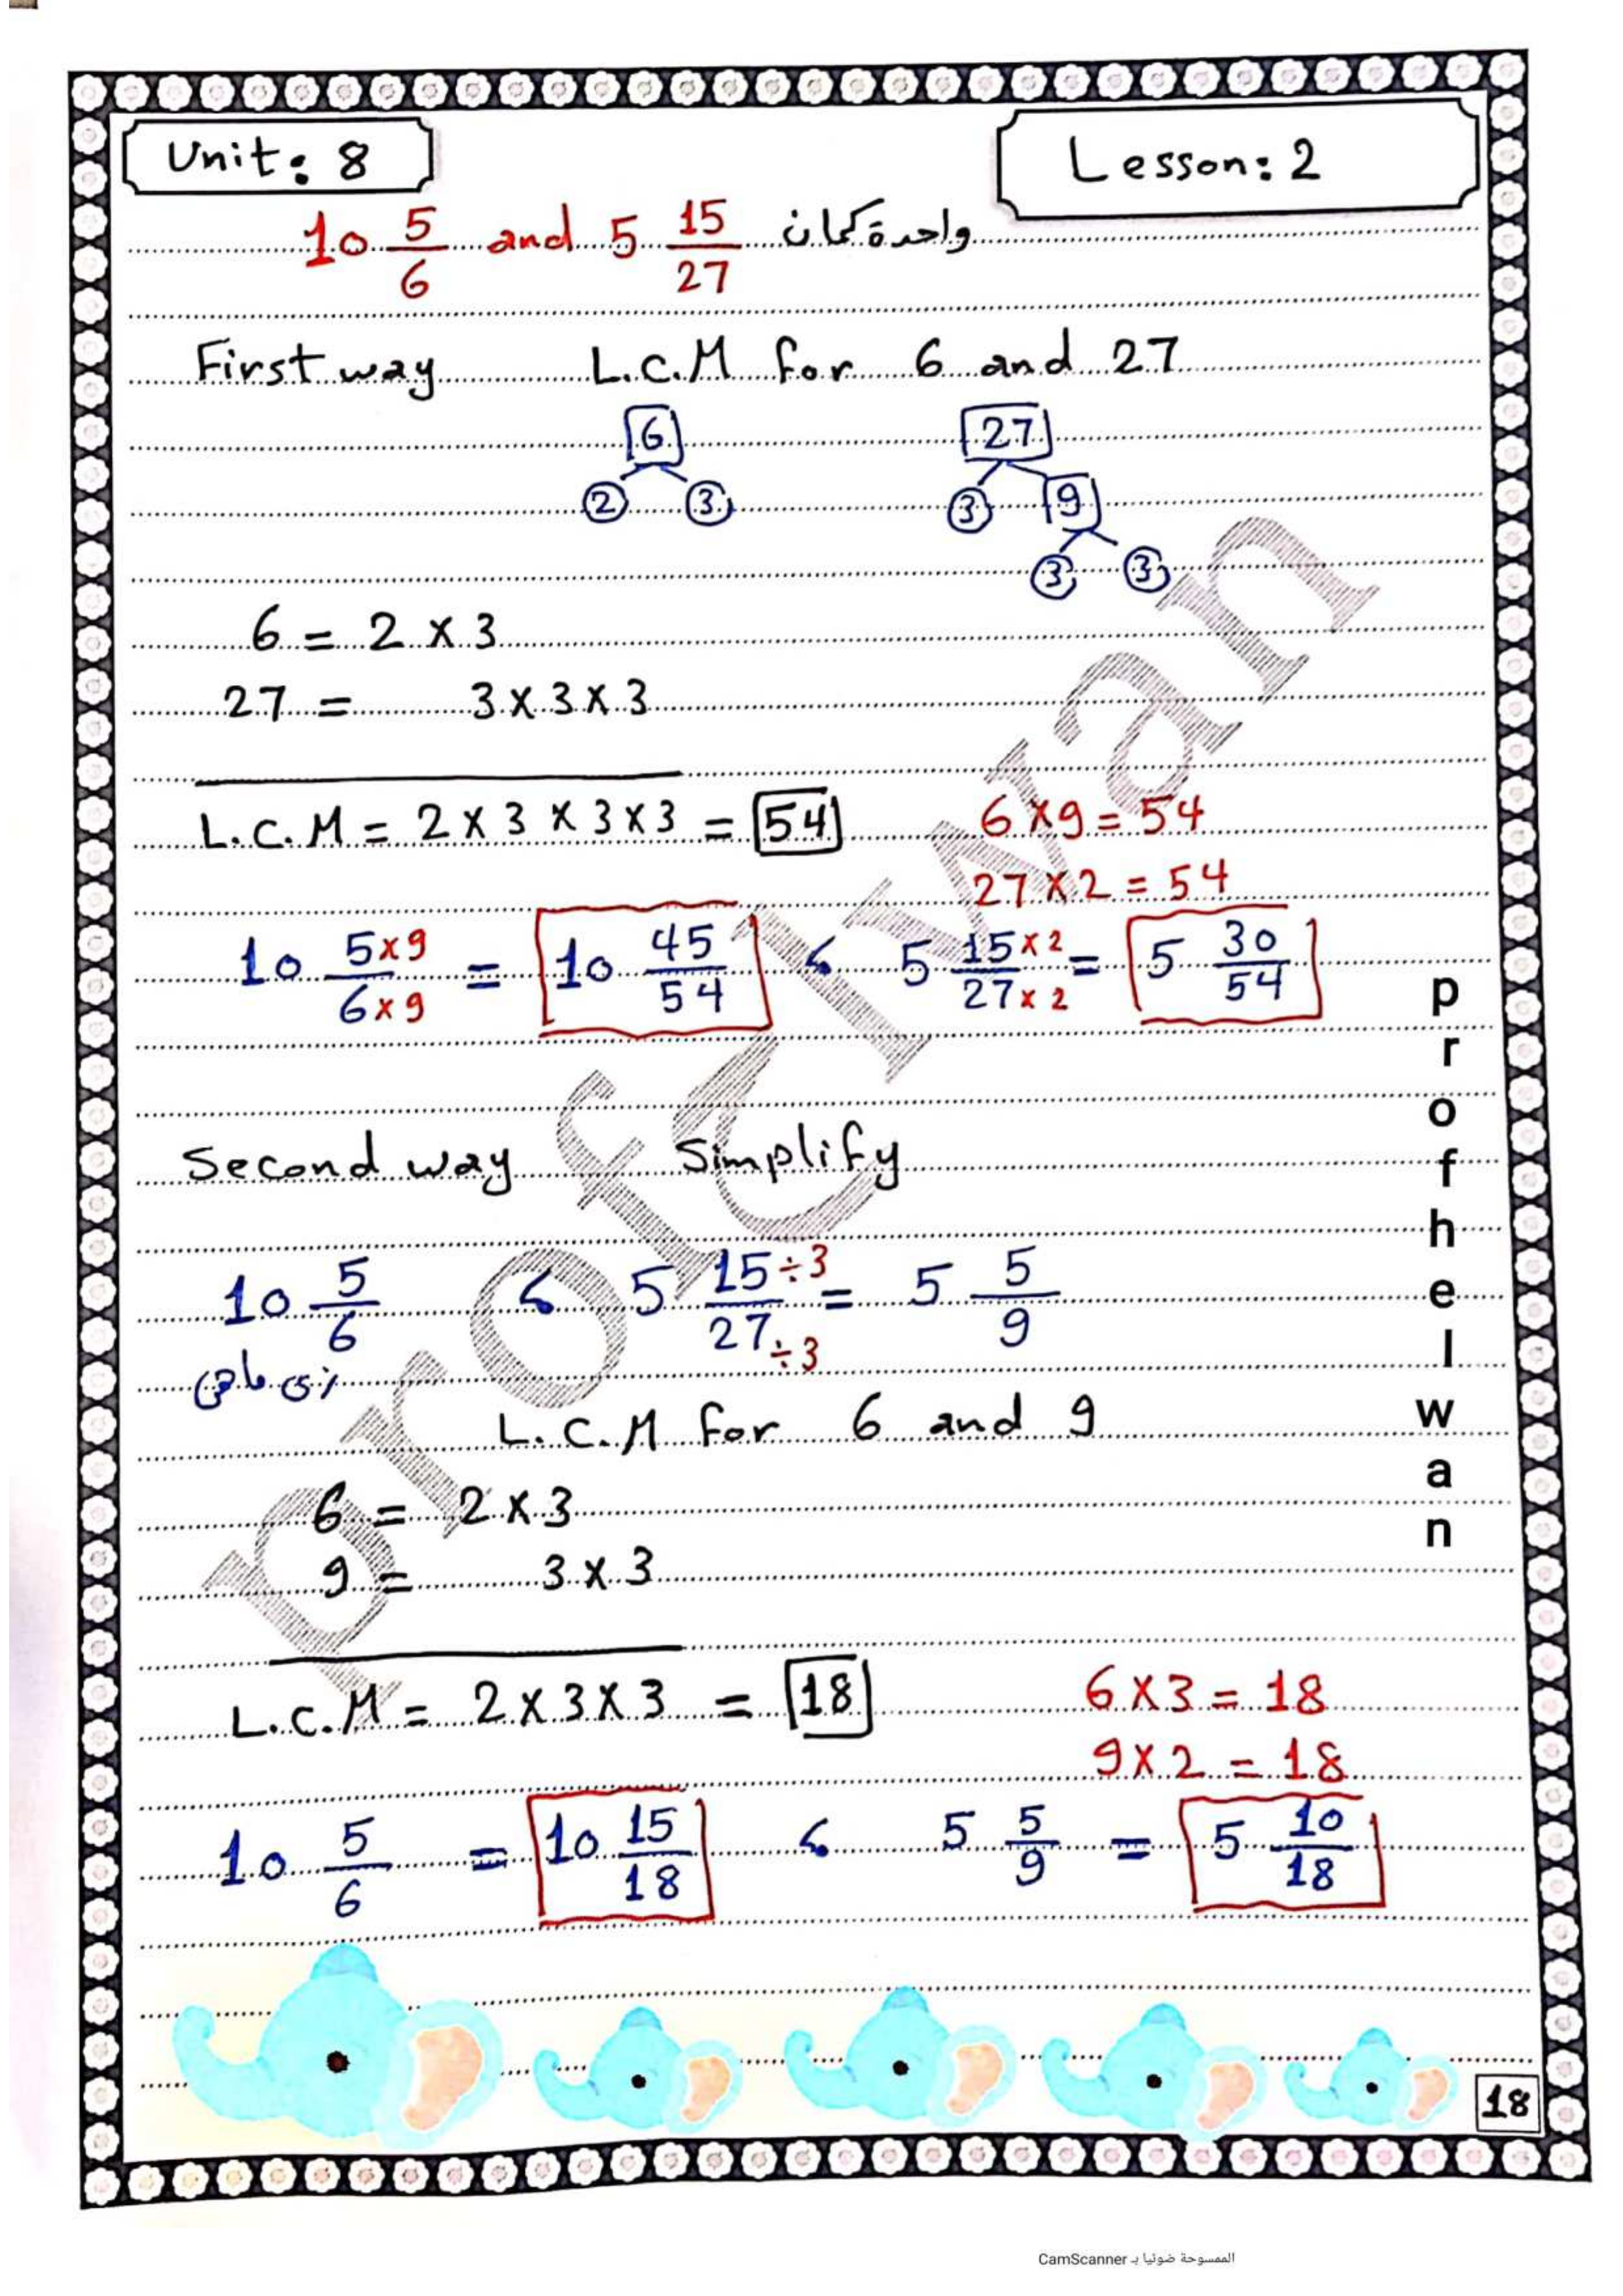 Unit: 8
Lesson: 2
10 5/6 and 5 15/27 واحدة كمان
First way L.C.M for 6 and 27
6 27
2 3 3 9
3 3
6 = 2 x 3
27 = 3 x 3 x 3
L.C.M = 2 x 3 x 3 x 3 = 54 6 x 9 = 54
27 x 2 = 54
10 5x9/6x9 = 10 45/54 ، 5 15x2/27x2 = 5 30/54
Second way Simplify
10 5/6 ، 5 15÷3/27÷3 = 5 5/9
زى ماهى
L.C.M for 6 and 9
6 = 2 x 3
9 = 3 x 3
L.C.M = 2 x 3 x 3 = 18 6 x 3 = 18
9 x 2 = 18
10 5/6 = 10 15/18 ، 5 5/9 = 5 10/18
prof helwan
prof Elwan
18
الممسوحة ضوئيا بـ CamScanner